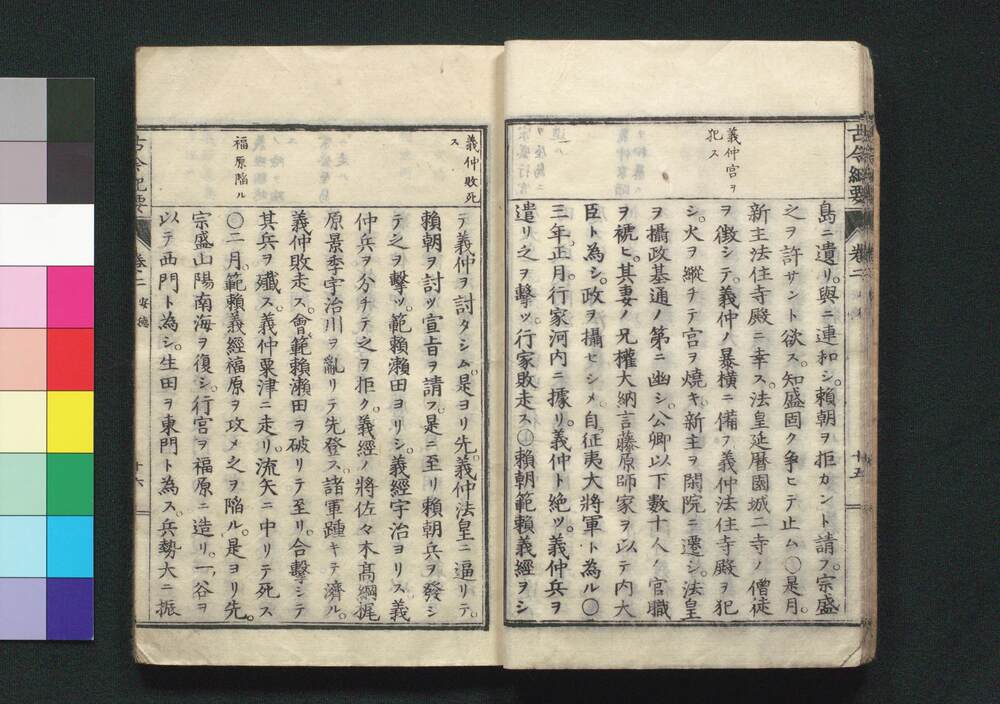 古今紀要
卷二
廿五
義仲宮ヲ
犯ス
島ニ遺リ。與ニ連和シ。賴朝ヲ拒カント請フ。宗盛
之ヲ許サント欲ス。知盛固ク爭ヒテ止ム〇是月。
新主法住寺殿ニ幸ス。法皇延曆園城二寺ノ僧徒
ヲ徵シテ。義仲ノ暴橫ニ備フ義仲法住寺殿ヲ犯
シ。火ヲ縱チテ宮ヲ燒キ。新主ヲ閑院ニ遷シ。法皇
ヲ攝政基通ノ第ニ幽シ。公卿以下數十人ノ官職
ヲ褫ヒ。其妻ノ兄權大納言藤原師家ヲ以テ內大
臣ト為シ。政ヲ攝セシメ。自征夷大將軍ト為ル〇
三年。正月。行家河內ニ據リ。義仲ト絕ツ。義仲兵ヲ
遣リ之ヲ擊ツ。行家敗走ス〇賴朝範賴義經ヲシ
義仲敗死
ス
福原陷ル
テ義仲ヲ討タシム。是ヨリ先。義仲法皇ニ逼リテ。
賴朝ヲ討ツ宣旨ヲ請フ。是ニ至リ賴朝兵ヲ發シ
テ之ヲ擊ツ。範賴瀨田ヨリシ。義經宇治ヨリス義
仲兵ヲ分チテ之ヲ拒ク。義經ノ將佐々木高綱梶
原景季宇治川ヲ亂リテ先登ス。諸軍踵キテ濟ル。
義仲敗走ス。會範賴瀨田ヲ破リテ至リ。合擊シテ
其兵ヲ殲ス。義仲粟津ニ走リ。流矢ニ中リテ死ス
〇二月。範賴義經福原ヲ攻メ之ヲ陷ル。是ヨリ先。
宗盛山陽南海ヲ復シ。行宮ヲ福原ニ造リ。一谷ヲ
以テ西門ト為シ。生田ヲ東門ト為ス。兵勢大ニ振
古今紀要
卷二
安德
廿六